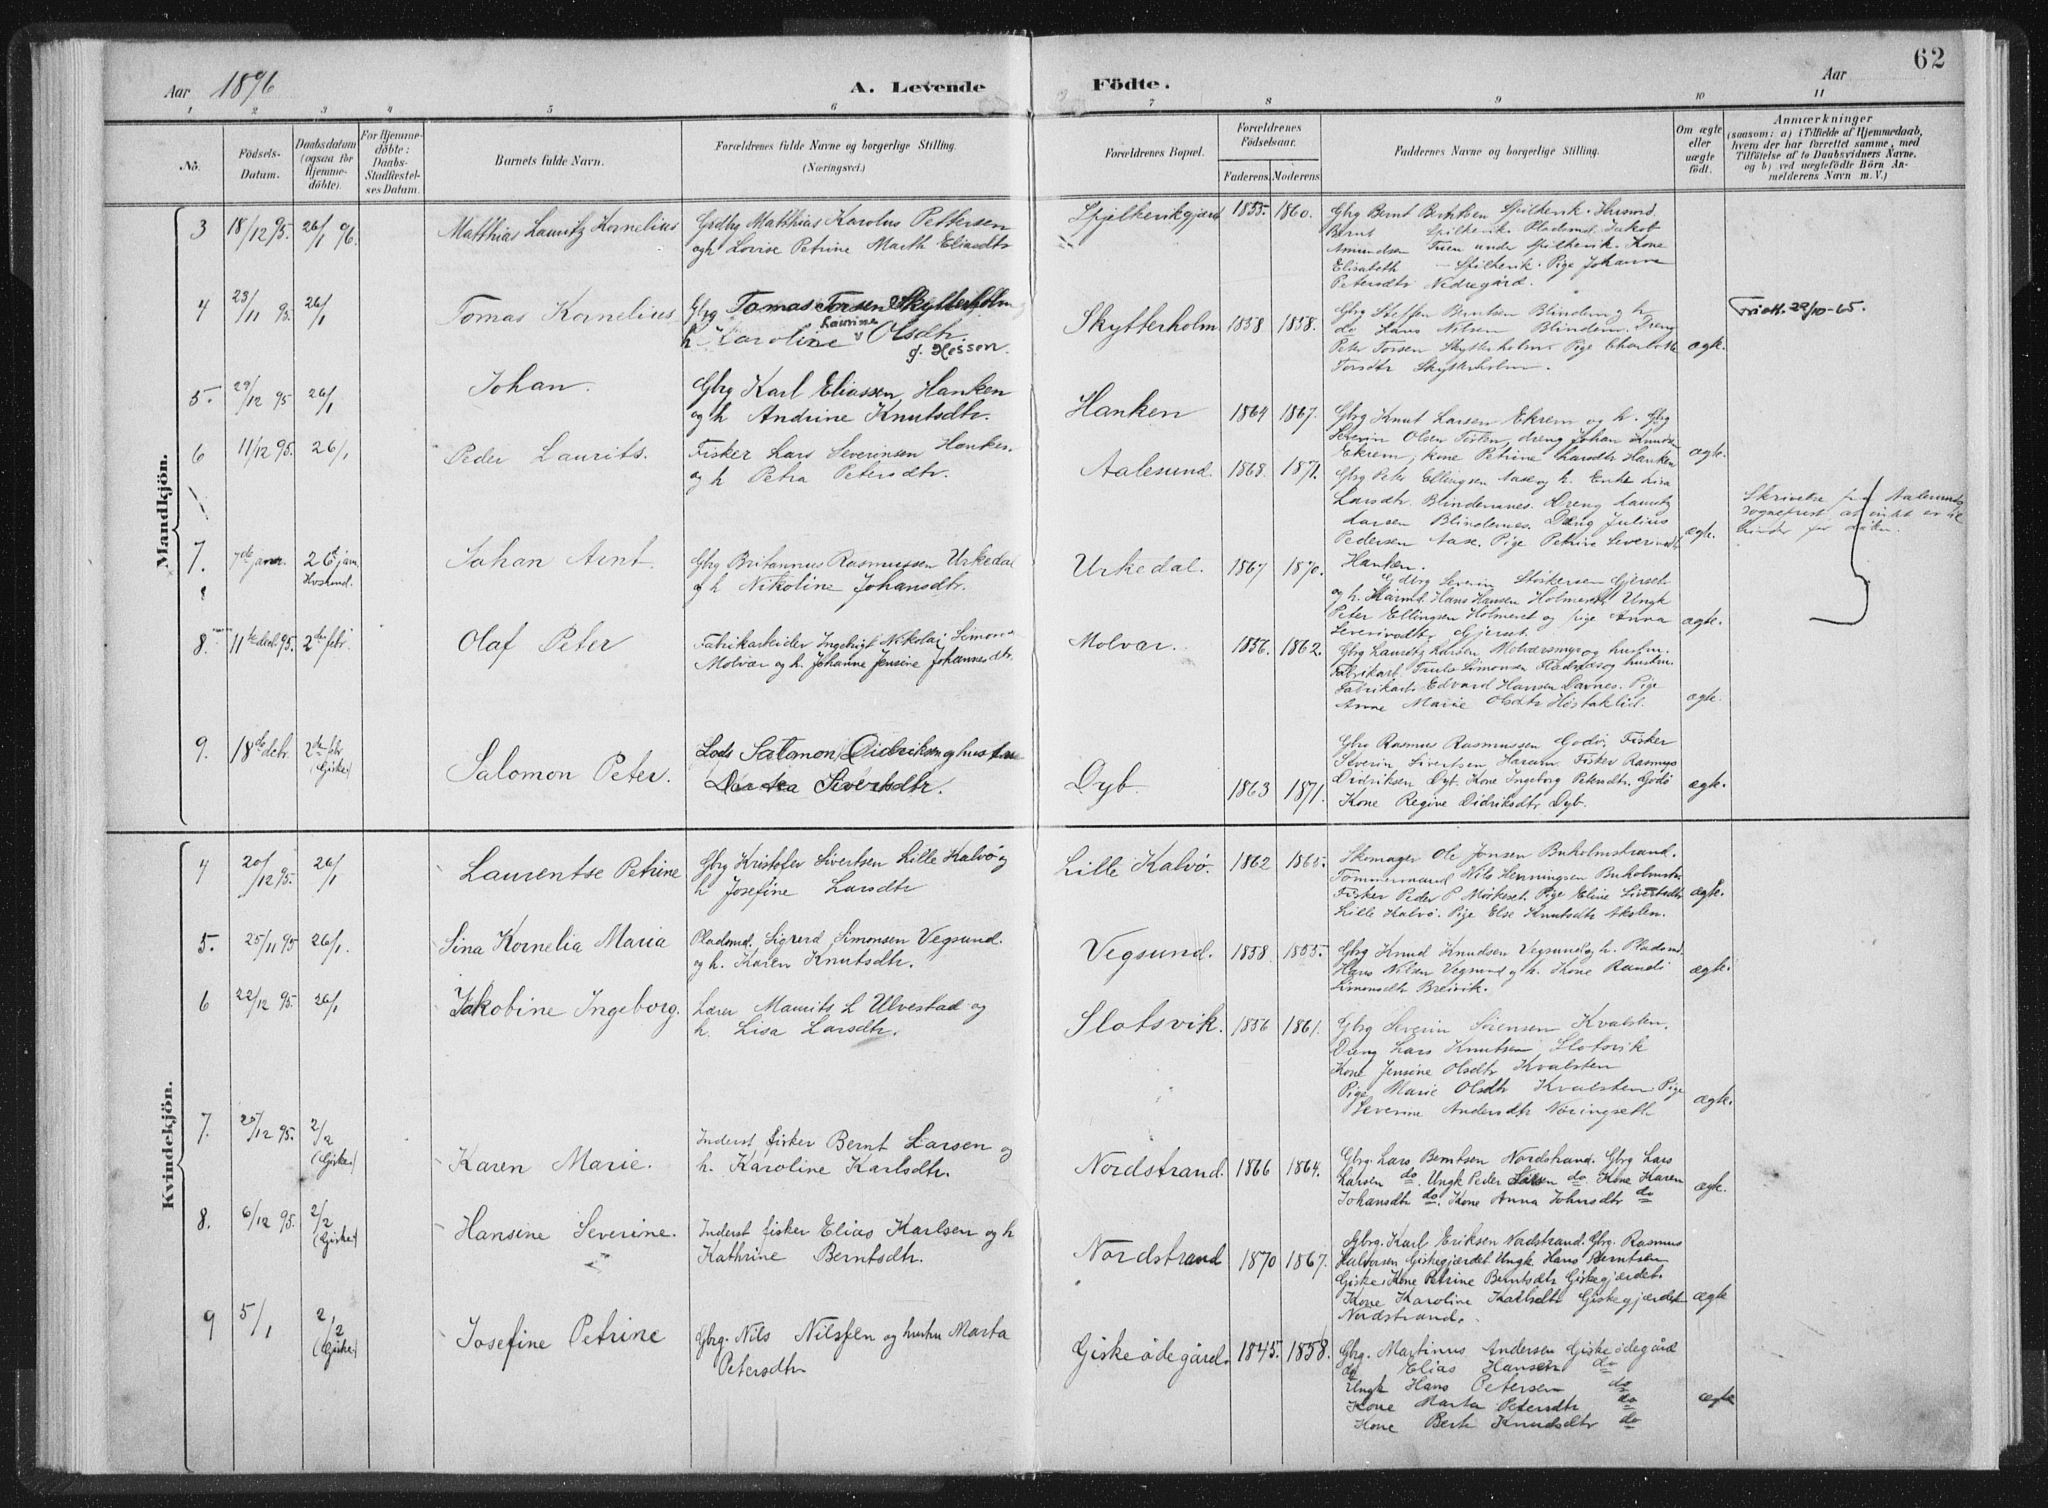 62
Aar 1896 A. Levende Födte. Aar
1 2 3 4 5 6 7 8 9 10 11
No. Födsels-Datum. Daabsdatum (ogsaa for Hjemme-döbte). For Hjemme-döbte: Daabs-Stadfæstel-ses Datum. Barnets fulde Navn. Forældrenes fulde Navne og borgerlige Stilling. (Næringsvei.) Forældrenes Bopæl. Forældrenes Födselsaar. Faderens. Moderens. Faddernes Navne og borgerlige Stilling. Om ægte eller uægte födt. Anmærkninger (saasom: a) i Tilfælde af Hjemmedaab, hvem der har forrettet samme, med Tilföielse af to Daabsvidners Navne, og b) ved uægtefödte Börn An-melderens Navn m. V.)
Mandkjön.
3 18/12 95. 26/1 96. Matthias Lauritz Kornelius Gsdbg Matthias Karolus Pettersen
og h Lovise Petrine Marth Eliasdtr
Spilkevikgjærd 1855. 1860. Gbg Bernt Berntsen Spilkevik. Husmd
Bernt Spilkevik. Pladsmd. Jakob
Amundsen Tuen under Spilkevik. Kone
Elisabeth – Spilkevik. Pige Johanne
Petersdtr Nedregård.
4 23/11 95. 26/1 Tomas Kornelius Gbg Tomas Torsen Skytterholm
h Karoline Laurine Olsdtr.
f. Hessen.
Skytterholm 1858 1858. Gbg Steffen Berntsen Blindem og h
do Hans Nilsen Blindem. Dreng
Peter Torsen Skytterholm. Pige Charlotte
Torsdtr Skytterholm. ægte. 22/10-65.
5. 29/12 95 26/1 Johan. Gbg Karl Eliassen Hanken
og h Andrine Knutsdtr.
Hanken 1864 1867. Gbg Knut Larsen Ekrem og h. Gbg
Severin Olsen Tisten, dreng Johan Knudsen
Ekrem, kone Petrine Larsdtr Hanken ægte.
6 11/12 95. 26/1 Peder Laurits. Fisker Lars Severinsen Hanken
og h Petra Petersdtr.
Aalesund. 1868. 1871. Gbg Peter Ellingsen Aase og h. Enke Lisa
Larsdtr. Blindemnes. Dreng Lauritz
Larsen Blindemnes. Dreng Julius
Pedersen Aase. Pige Petrine Severinsdtr
Hanken. ægte. Skrivelse fra Aalesunds
sognepræst at intet er til
hinder for dåben.
7. 7de janr. 26de jan. Hovland. Johan Arnt. Gbg Britannus Rasmussen Urkedal
og h Nikoline Johansdtr.
Urkedal. 1867 1870. Gbrg Severin Störkersen Gjerset
og h. Kaarmd. Hans Hansen Holmeset. Ungk
Peter Ellingsen Holmeset og pige Anna
Severinsdtr. Gjerset. ægte.
8. 11te decb. 95. 2den febr. Olaf Peter Fabrikarbeider Ingebrigt Nikolaj Simonsen
Molvær og h. Johanne Jensine Johannesdtr.
Molvær. 1856. 1862. Gbg Lauritz Larsen Molværsmyr og hustru.
Fabrikarb. Truls Simonsen Fladnæs og hustru.
Fabrikarb. Edvard Hansen Davnes. Pige
Anne Marie Olsdtr Höstaklid. ægte.
9. 18de decbr. 2den febr (Giske) Salomon Peter. Lods Salomon Didriksen og hustru
Dortea Sivertsdtr.
Dyb. 1863 1871. Gbrg Rasmus Rasmussen Godö. Fisker
Severin Sivertsen Haram. Fisker Rasmus
Didriksen Dyb. Kone Ingeborg Petersdtr. Godö
Kone Regine Didriksdtr Dyb. ægte.
Kvindekjön.
4 20/12 95. 26/1 Laurentse Petrine Gbg Kristofer Sivertsen Lille Kalvö og
h Josefine Larsdtr
Lille Kalvö. 1862 1865. Skomager Ole Jonsen Buholmstrand.
Tömmermand Nils Henningsen Buholmstr
Fisker Peder P Mörkeset. Pige Eline Sivertsdtr
Lille Kalvö. Pige Else Knutsdtr Akslen. ægte.
5. 25/11 95 26/1. Sina Kornelia Maria Pladsmd. Sigverd Simonsen Vegsund.
og h. Karen Knutsdtr.
Vegsund. 1858 1855. Gbg Knud Knudsen Vegsund og h. Pladsmd.
Hans Nilsen Vegsund og h. Kone Randi
Simonsdtr Breivik. ægte.
6 22/12 95. 26/1 Jakobine Ingeborg. Lærer Maurits L Ulvestad og
h. Lisa Larsdtr.
Slotsvik. 1856 1861. Gbg Severin Sörensen Kvalsten.
Dreng Lars Knutsen Slotsvik
Kone Jensine Olsdtr Kvalsten
Pige Marie Olsdtr Kvalsten. Pige
Severine Andersdtr Nöringseth ægte.
7. 25/12 95. 2/2 (Giske) Karen Marie. Inderst fisker Bernt Larsen og
h. Karoline Karlsdtr.
Nordstrand. 1866 1864. Gbg. Lars Berntsen Nordstrand. Gbrg Lars
Larsen do. Ungk Peder Larsen do. Kone Karen
Johansdtr do. Kone Anna Johnsdtr do ægte.
8. 6/12 95. 2/2 (Giske) Hansine Severine. Inderst fisker Elias Karlsen og h
Kathrine Berntsdtr.
Nordstrand 1870 1867. Gbrg. Karl Eriksen Nordstrand. Gbrg. Rasmus
Halvorsen Giskegjerdet. Ungk Hans Berntsen
Giske. Kone Petrine Berntsdtr Giskegjærdet.
Kone Karoline Karlsdtr Giskegjærdet
Nordstrand. ægte
9 5/1 2/2 (Giske) Josefine Petrine Gbrg. Nils Nilssen og hustru Marta
Petersdtr
Giskeödegård. 1845. 1858. Gbrg. Martinus Andersen Giskeödegård
do Elias Hansen do
Ungk Hans Petersen do
Kone Marta Petersdtr do
Kone Berte Knudsdtr do ægte